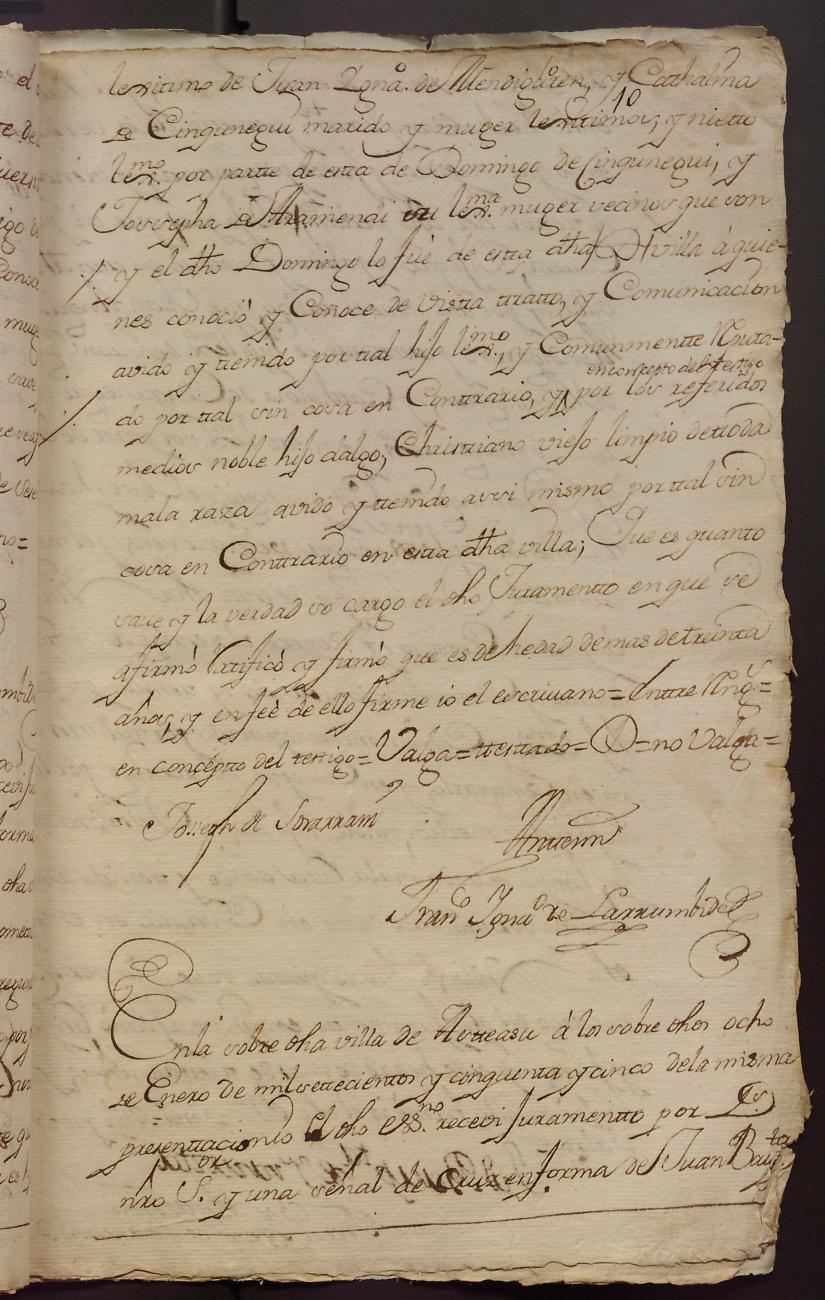 lexitimo de Juan Ygnº. de Mendiguren, y Cathalina
10
de Cingunegui marido y muger lexitimos, y nietto
lexmo. por parte de esta de Domingo de Cingunegui, y
Jossepha de Aramendi su lexma. muger vecinos que son
y el dho Domingo lo fué de esta dha villa á quie-
nes conoció y Conoce de vista tratto, y Comunicacion
avido y tenido por tal hijo lexmo., y Comunmente Reputa-
en consepto del testigo
do por tal sin cosa en Contrario, y por los referidos
medios noble hijo dalgo, Christiano viejo limpio de toda
mala raza avido y tenido assi mismo por tal sin
cosa en Contrario en esta dha villa; Que es quanto
save y la verdad so cargo el dho Juramento en que se
afirmó Ratificó y firmó que es de hedad de mas de treinta
años, y en feé de ello firme io el escrivano= Entre Rengs.=
en concepto del testigo= Valga= testado= D= no Valga=
Joseph de Sorarrain
Antemi
Franco Ygnaº de Larrumbide
En la sobre dha villa de Asteasu á los sobre dhos ocho
de Enero de mil settecientos y cinquenta y cinco de la misma
presenttacion Yo el dho essno. receví Juramentto por Ds
nro Sor. y una señal de Cruz en forma de Juan Bauta